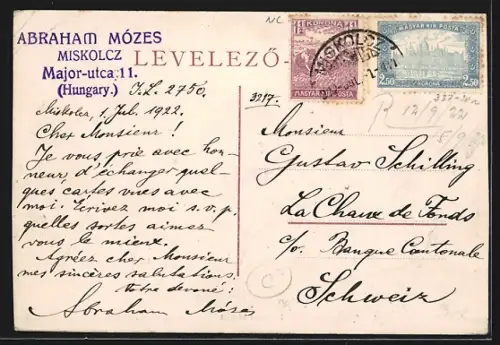 ABRAHAM MÓZES
MISKOLCZ
Major-utca 11.
(Hungary.)
LEVELEZŐ-
NC
1½ KORONA 1½
MAGYAR POSTA
MAGYAR KIR. POSTA
2.50 KORONA 2.50
MISKOLCZ
I.L. 2750.
3317.
Miskolcz, 1. Jul. 1922.
Cher Monsieur!
Je vous prie avec hon-
neur d'échanger quel-
ques cartes vues avec
moi. Ecrivez moi s.v.p.
quelles sortes aimez
vous le mieux.
Agréez cher Monsieur
mes sincères salutations.
Votre devoué:
Abraham Mózes
R 12/9/22
Monsieur
Gustav Schilling
La Chaux de Fonds
c/o. Banque Cantonale
Schweiz